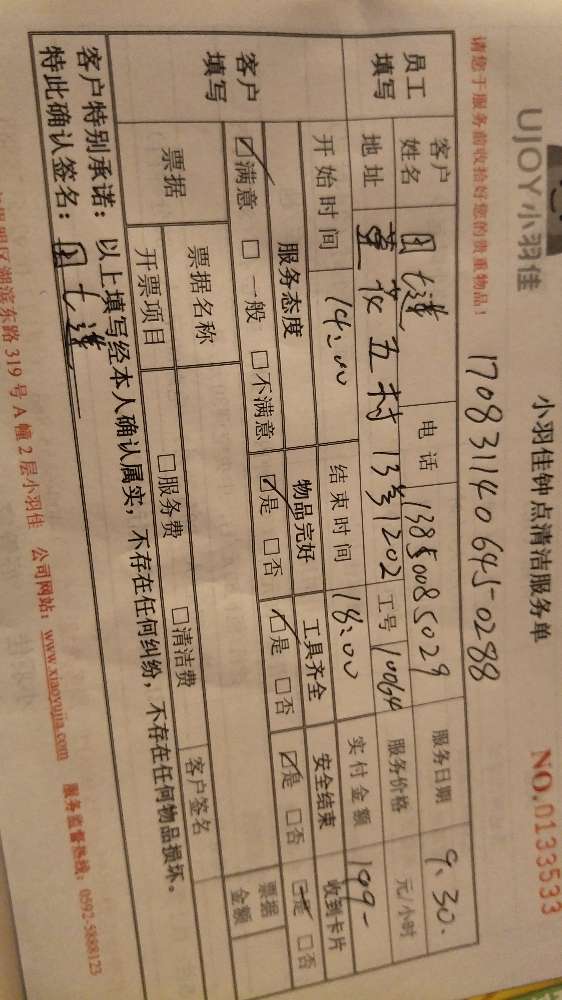 UJOY小羽佳
小羽佳钟点清洁服务单
NO.0133533
请您于服务前收拾好您的贵重物品!
170831140645-0288
员工填写
客户姓名
电话 13850085029
服务日期 9.30.
地址
五村13号1202
工号 10064
服务价格 元/小时
开始时间 14:00
结束时间 18:00
实付金额 199-
客户填写
服务态度 物品完好 工具齐全 安全结束 收到卡片
☑满意 □一般 □不满意 ☑是 □否 ☑是 □否 ☑是 □否 ☑是 □否
票据
票据名称
票据金额
开票项目 □服务费 □清洁费 客户签名
客户特别承诺:以上填写经本人确认属实,不存在任何纠纷,不存在任何物品损坏。
特此确认签名:
明区湖滨东路319号A幢2层小羽佳 公司网站:www.xiaoyujia.com 服务监督热线:0592-5888123